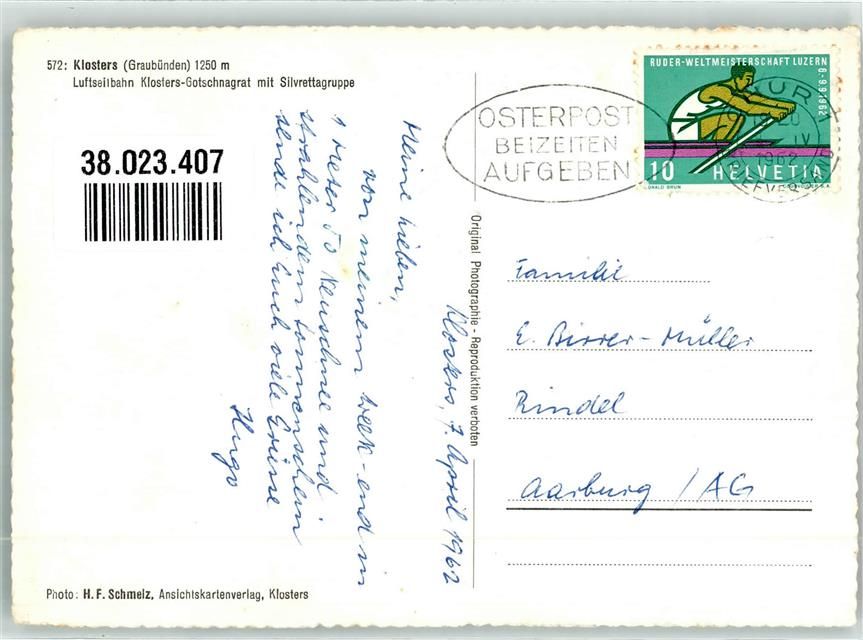 572: Klosters (Graubünden) 1250 m
Luftseilbahn Klosters-Gotschnagrat mit Silvrettagruppe
38.023.407
Klosters, 7. April 1962
Meine Lieben,
von meinem week-end in
1 Meter 50 Neuschnee und
strahlendem Sonnenschein
sende ich Euch viele Grüsse
Hugo
Original Photographie - Reproduktion verboten
OSTERPOST
BEIZEITEN
AUFGEBEN
RUDER-WELTMEISTERSCHAFT LUZERN
6.-9.9.1962
10 HELVETIA
DONALD BRUN
CHUR 1
IV
1962
BRIEFVERSAND
Familie
E. Birrer-Müller
Rindel
Aarburg / AG
Photo: H. F. Schmelz, Ansichtskartenverlag, Klosters